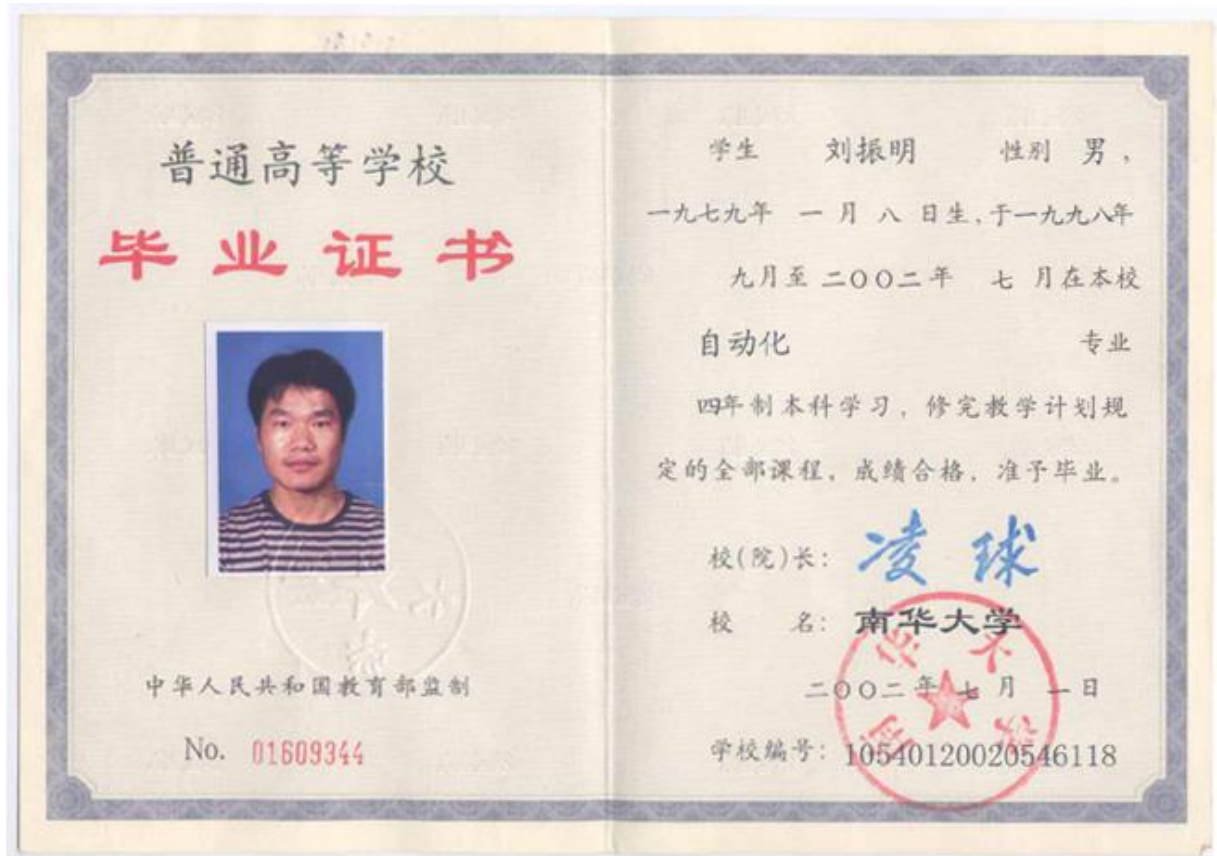 普通高等学校
毕业证书
中华人民共和国教育部监制
No. 01609344
学生 刘振明 性别 男，
一九七九年 一 月 八 日生，于一九九八年
九月至 二〇〇二年 七 月在本校
自动化 专业
四年制本科学习，修完教学计划规
定的全部课程，成绩合格，准予毕业。
校(院)长： 凌球
校 名： 南华大学
二〇〇二年 七 月 一 日
学校编号： 10540120020546118
南华大学